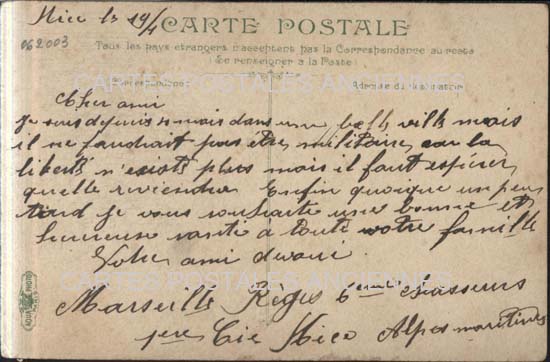 Nice le 19/1
062003
CARTE POSTALE
Tous les pays étrangers n'acceptent pas la Correspondance au recto
(Se renseigner à la Poste)
Correspondance
Adresse du destinataire
CARTES POSTALES ANCIENNES
Cher ami
Je suis depuis 4 mois dans une belle ville mais
il ne faudrait pas être militaire car la
liberté n'existe plus mais il faut espérer
quelle reviendra Enfin quoique un peu
tard je vous souhaite une bonne et
heureuse santé à toute votre famille
Votre ami
CARTES POSTALES ANCIENNES
Marseille Régis 6eme Chasseurs
1ere Cie Nice Alpes maritimes